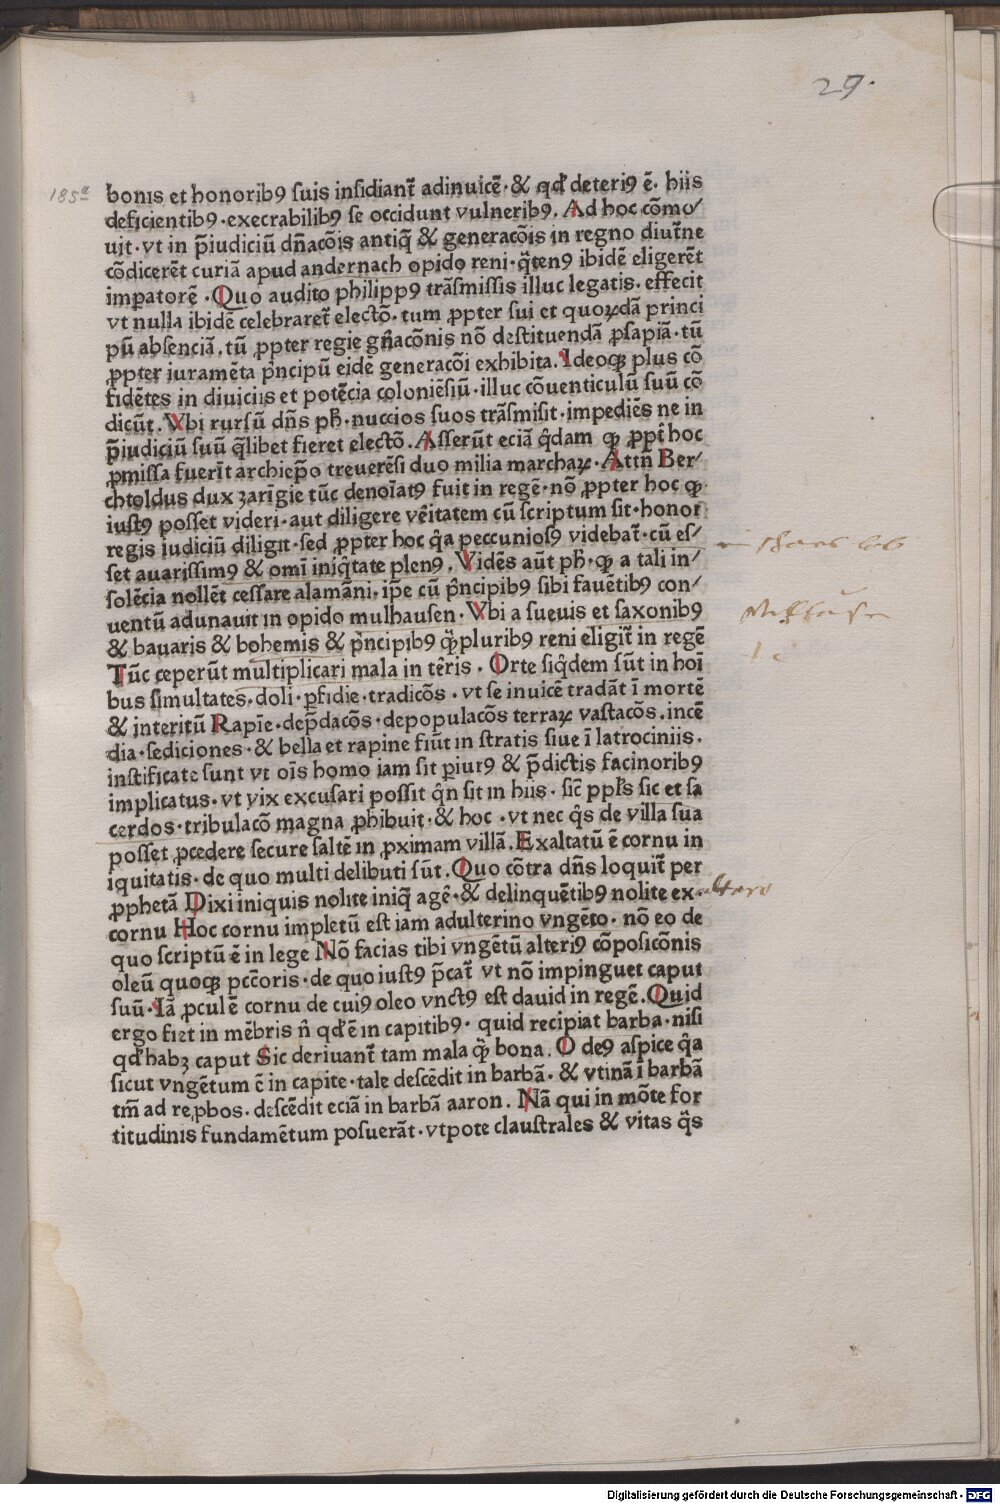 29.
185a
bonis et honorib9 suis insidiant᷑ adinuicē·& qd᷑ deteri9 ē. hiis
deficientib9·execrabilib9 se occidunt vulnerib9. Ad hoc cōmo/
uit·vt in p̄iudiciū dn̄acōis antiq̄ & generacōis in regno diut᷑ne
cōdicerēt curiā apud andernach opido reni·q̄ten9 ibidē eligerēt
imperatorē·Quo audito philipp9 trāsmissis illuc legatis·effecit
vt nulla ibidē celebraret᷑ electō·tum ꝓpter sui et quoꝝdā princi
pū absenciā.tū ꝓpter regie gn̄acōnis nō destituendā ꝓsapiā·tū
ꝓpter iuramēta p̄ncipū eidē generacōi exhibita.Ideoqꝫ plus cō
fidētes in diuiciis et potēcia coloniēsiū·illuc cōuenticulū suū cō
dicūt.Vbi rursū dn̄s ph̄·nuccios suos trāsmisit·impediēs ne in
p̄iudiciū suū q̄libet fieret electō.Asserūt eciā q̄dam qꝫ ꝓpt᷑ hoc
ꝓmissa fuerīt archiep̄o treuerēsi duo milia marchaꝝ·Attn̄ Ber/
chtoldus dux zarīgie tūc denoīat9 fuit in regē·nō ꝓpter hoc qꝫ
iust9 posset videri·aut diligere vēitatem cū scriptum sit·honor
regis iudiciū diligit·sed ꝓpter hoc q̄a peccunios9 videbat᷑·cū es/
set auarissim9 & omī iniq̄tate plen9.Vidēs aūt ph̄·qꝫ a tali in/
solēcia nollēt cessare alamāni·ip̄e cū p̄ncipib9 sibi fauētib9 con/
uentū adunauit in opido mulhausen·Vbi a sueuis et saxonib9
& bauaris & bohemis & p̄ncipib9 q̄pluribꝰ reni eligit᷑ in regē
Tūc ceperūt multiplicari mala in tēris.Orte siq̄dem sūt in hoī
bus simultates·doli·ꝑfidie·tradicōs·vt se inuicē tradāt ī mortē
& interitū Rapīe·dep̄dacōs·depopulacōs terraꝝ vastacōs.incē
dia·sediciones·& bella et rapine fiūt in stratis siue ī latrociniis.
instificate sunt vt oīs homo iam sit ꝑiur9 & p̄dictis facinorib9
implicatus·vt vix excusari possit q̄n sit in hiis·sic̄ ppl̄s sic et sa
cerdos·tribulacō magna ꝓhibuit·& hoc·vt nec q̄s de villa sua
posset ꝓcedere secure saltē in ꝓximam villā.Exaltatū ē cornu in
iquitatis·de quo multi delibuti sūt.Quo cōtra dn̄s loquit᷑ per
ꝓphetā Dixi iniquis nolite iniq̄ agē·& delinquētib9 nolite ex
cornu Hoc cornu impletū est iam adulterino vngēto·nō eo de
quo scriptū ē in lege Nō facias tibi vngētū alteri9 cōposicōnis
oleū quoqꝫ pcc̄oris·de quo iust9 p̄cat᷑ vt nō impinguet caput
suū·Iā ꝓcul ē cornu de cui9 oleo vnct9 est dauid in regē.Quid
ergo fiet in mēbris n̄ qd᷑ ē in capitib9·quid recipiat barba·nisi
qd᷑ habꝫ caput Sic deriuant᷑ tam mala q̄ bona.O de9 aspice q̄a
sicut vngētum ē in capite·tale descēdit in barbā·& vtinā ī barbā
tm̄ ad reꝓbos·descēdit eciā in barbā aaron.Nā qui in mōte for
titudinis fundamētum posuerāt·vtpote claustrales & vitas q̄s
Digitalisierung gefördert durch die Deutsche Forschungsgemeinschaft - DFG